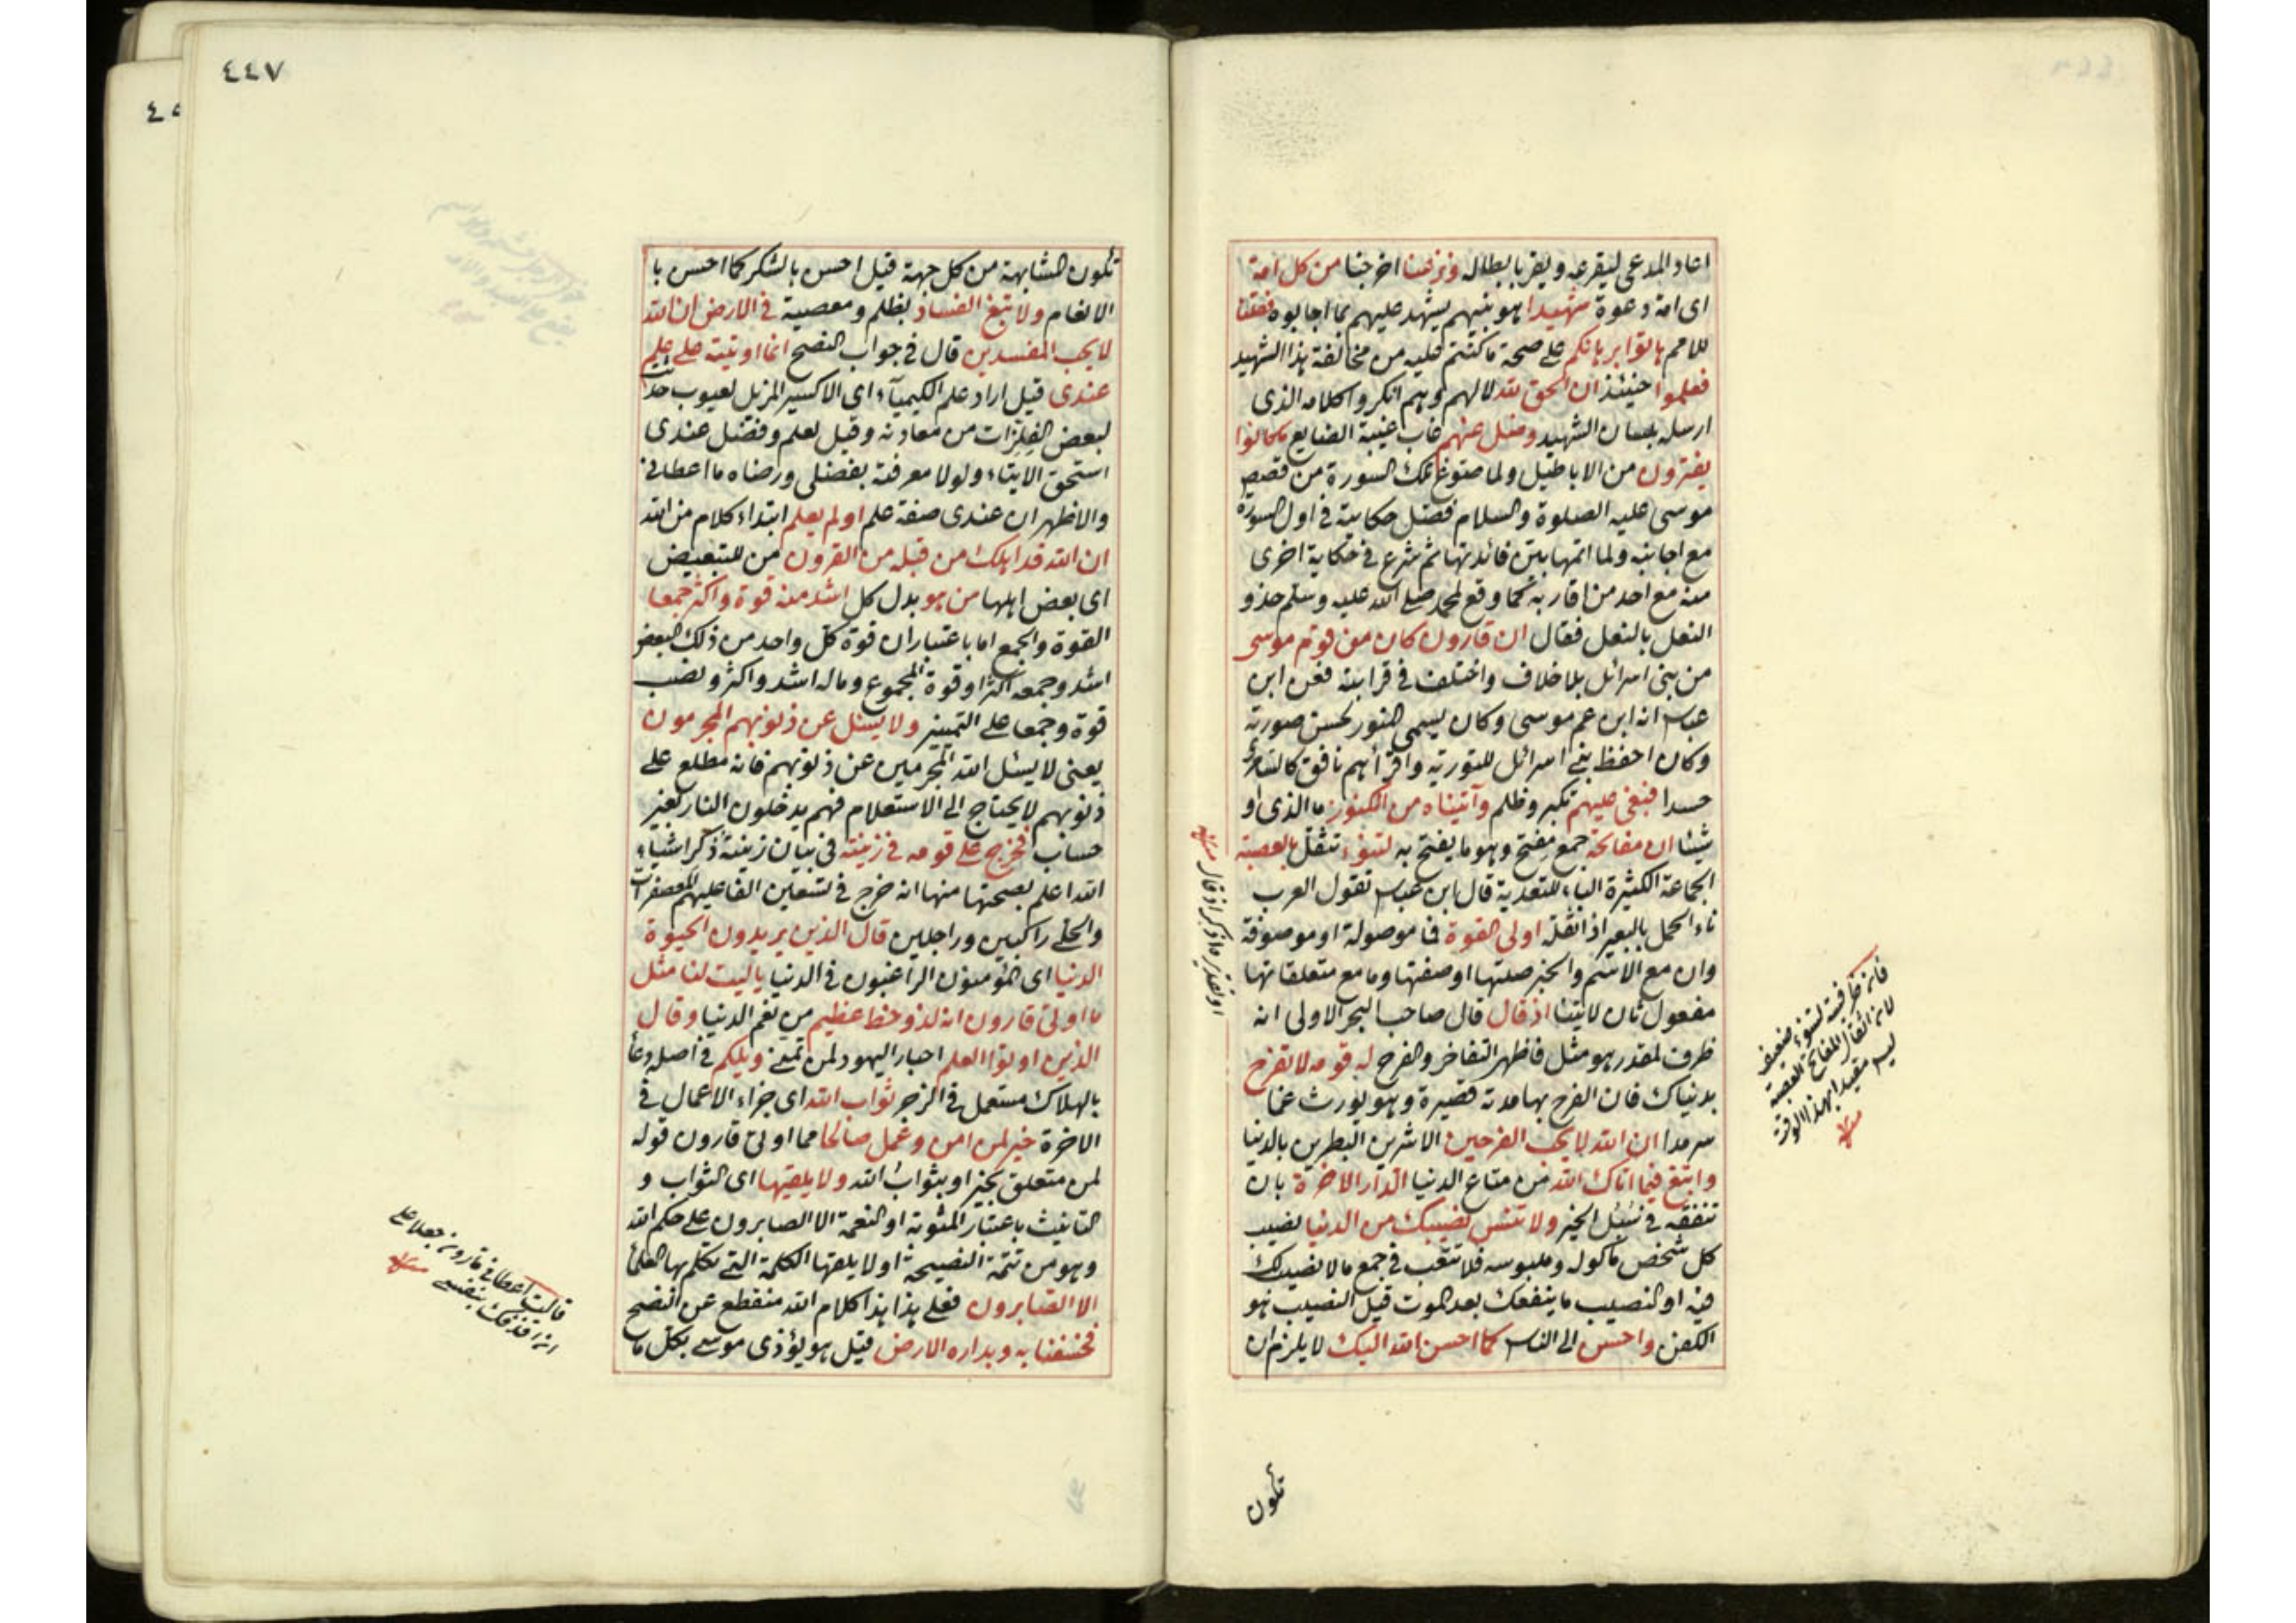 اعاد المدعى ليقرعه ويقر بابطاله ونزعنا اخرجنا من كل امة
اى امة دعوة شهيدا هو نبيهم يشهد عليهم بما اجابوه فقلنا
للامم هاتوا برهانكم على صحة ما كنتم عليه من مخالفة هذا الشهيد
فعلموا حينئذ ان الحق لله لا لهم وهم انكروا كلامه الذى
ارسله بلسان الشهيد وضل عنهم غاب غيبة الضايع ما كانوا
يفترون من الاباطيل ولما تلك السورة من قصص
موسى عليه الصلوة والسلام فصل حكايته فى اول السورة
مع اجانبه ولما اتمها بين فائدتها ثم شرع فى حكاية اخرى
منه مع احد من اقاربه كما وقع لمحمد صلى الله عليه وسلم حذو
النعل بالنعل فقال ان قارون كان من قوم موسى
من بنى اسرائل بلا خلاف واختلف فى قرابته فعن ابن
عباس انه ابن عم موسى وكان يسمى المنور لحسن صورته
وكان احفظ بنى اسرائل للتورية واقرأهم نافق كالسامرى
حسدا فبغى عليهم تكبر وظلم وآتيناه من الكنوز ما الذى او
شيئا ان مفاتحه جمع مفتح وهو ما يفتح به لتنوء تثقل بالعصبة
الجماعة الكثيرة الباء للتعدية قال ابن عباس تقول العرب
ناء الحمل بالبعير اذ اثقله اولى القوة فما موصولة او موصوفة
وان مع الاسم والخبر صلتها او صفتها وما مع متعلقاتها
مفعول ثان لآتينا اذ قال قال صاحب البحر الاولى انه
ظرف لمقدر هو مثل فاظهر التفاخر والفرح له قومه لا تفرح
بدنياك فان الفرح بها مدته قصيرة وهو يورث غما
سرمدا ان الله لا يحب الفرحين الاشرين البطرين بالدنيا
وابتغ فيما اتاك الله من متاع الدنيا الدار الاخرة بان
تنفقه فى سبل الخير ولا تنس نصيبك من الدنيا نصيب
كل شخص مأكوله وملبوسه فلا تتعب فى جمع ما لا نصيب لك
فيه او النصيب ما ينفعك بعد الموت قيل النصيب هو
الكفن واحسن الى الناس كما احسن الله اليك لا يلزم ان
او لمقدر اذكر اذ قال
فانه ظرفية لتنوء ضعيف
لان اثقال المفاتح العصبة
ليس مقيدا بهذا الوقت
تكون
٤٤٧
تكون المشابهة من كل جهة قيل احسن بالشكر كما احسن با
الانعام ولا تبغ الفساد بظلم ومعصية فى الارض ان الله
لا يحب المفسدين قال فى جواب النصح انما اوتيته على علم
عندى قيل اراد علم الكيمياء اى الاكسير المزيل لعيوب
لبعض الفلزات من معادنه وقيل لعلم وفضل عندى
استحق الايتاء ولولا معرفته بفضلى ورضاه ما اعطانى
والاظهر ان عندى صفة علم اولم يعلم ابتداء كلام من الله
ان الله قد اهلك من قبله من القرون من للتبعيض
اى بعض اهلها من هو بدل كل اشد منه قوة واكثر جمعا
القوة والجمع اما باعتبار ان قوة كل واحد من ذلك البعض
اشد وجمعه اكثر او قوة المجموع وماله اشد واكثر ونصب
قوة وجمعا على التمييز ولا يسئل عن ذنوبهم المجرمون
يعنى لا يسئل الله المجرمين عن ذنوبهم فانه مطلع على
ذنوبهم لا يحتاج الى الاستعلام فهم يدخلون النار بغير
حساب فخرج على قومه فى زينته فى بيان زينته ذكر اشياء
الله اعلم بصحتها منها انه خرج فى تسعين الفا عليهم المعصفرات
والحلى راكبين وراجلين قال الذين يريدون الحيوة
الدنيا اى المؤمنون الراغبون فى الدنيا يا ليت لنا مثل
ما اوتى قارون انه لذو حظ عظيم من نعم الدنيا وقال
الذين اوتوا العلم احبار اليهود لمن تمنى ويلكم فى اصله دعاء
بالهلاك مستعمل فى الزجر ثواب الله اى جزاء الاعمال فى
الاخرة خير لمن امن وعمل صالحا مما اوتى قارون قوله
لمن متعلق بخير او بثواب الله ولا يلقيها اى الثواب و
التانيث باعتبار المثوبة او النعمة الا الصابرون على حكم الله
وهو من تتمة النصيحة او لا يلقها الكلمة التى تكلم بها العلماء
الا الصابرون فعلى هذا هذا كلام الله منقطع عن النصح
فخسفنا به وبداره الارض قيل هو يؤذى موسى بكل ما
قالت اعطانى قارون جعلا على
ان اقذفك بنفسى